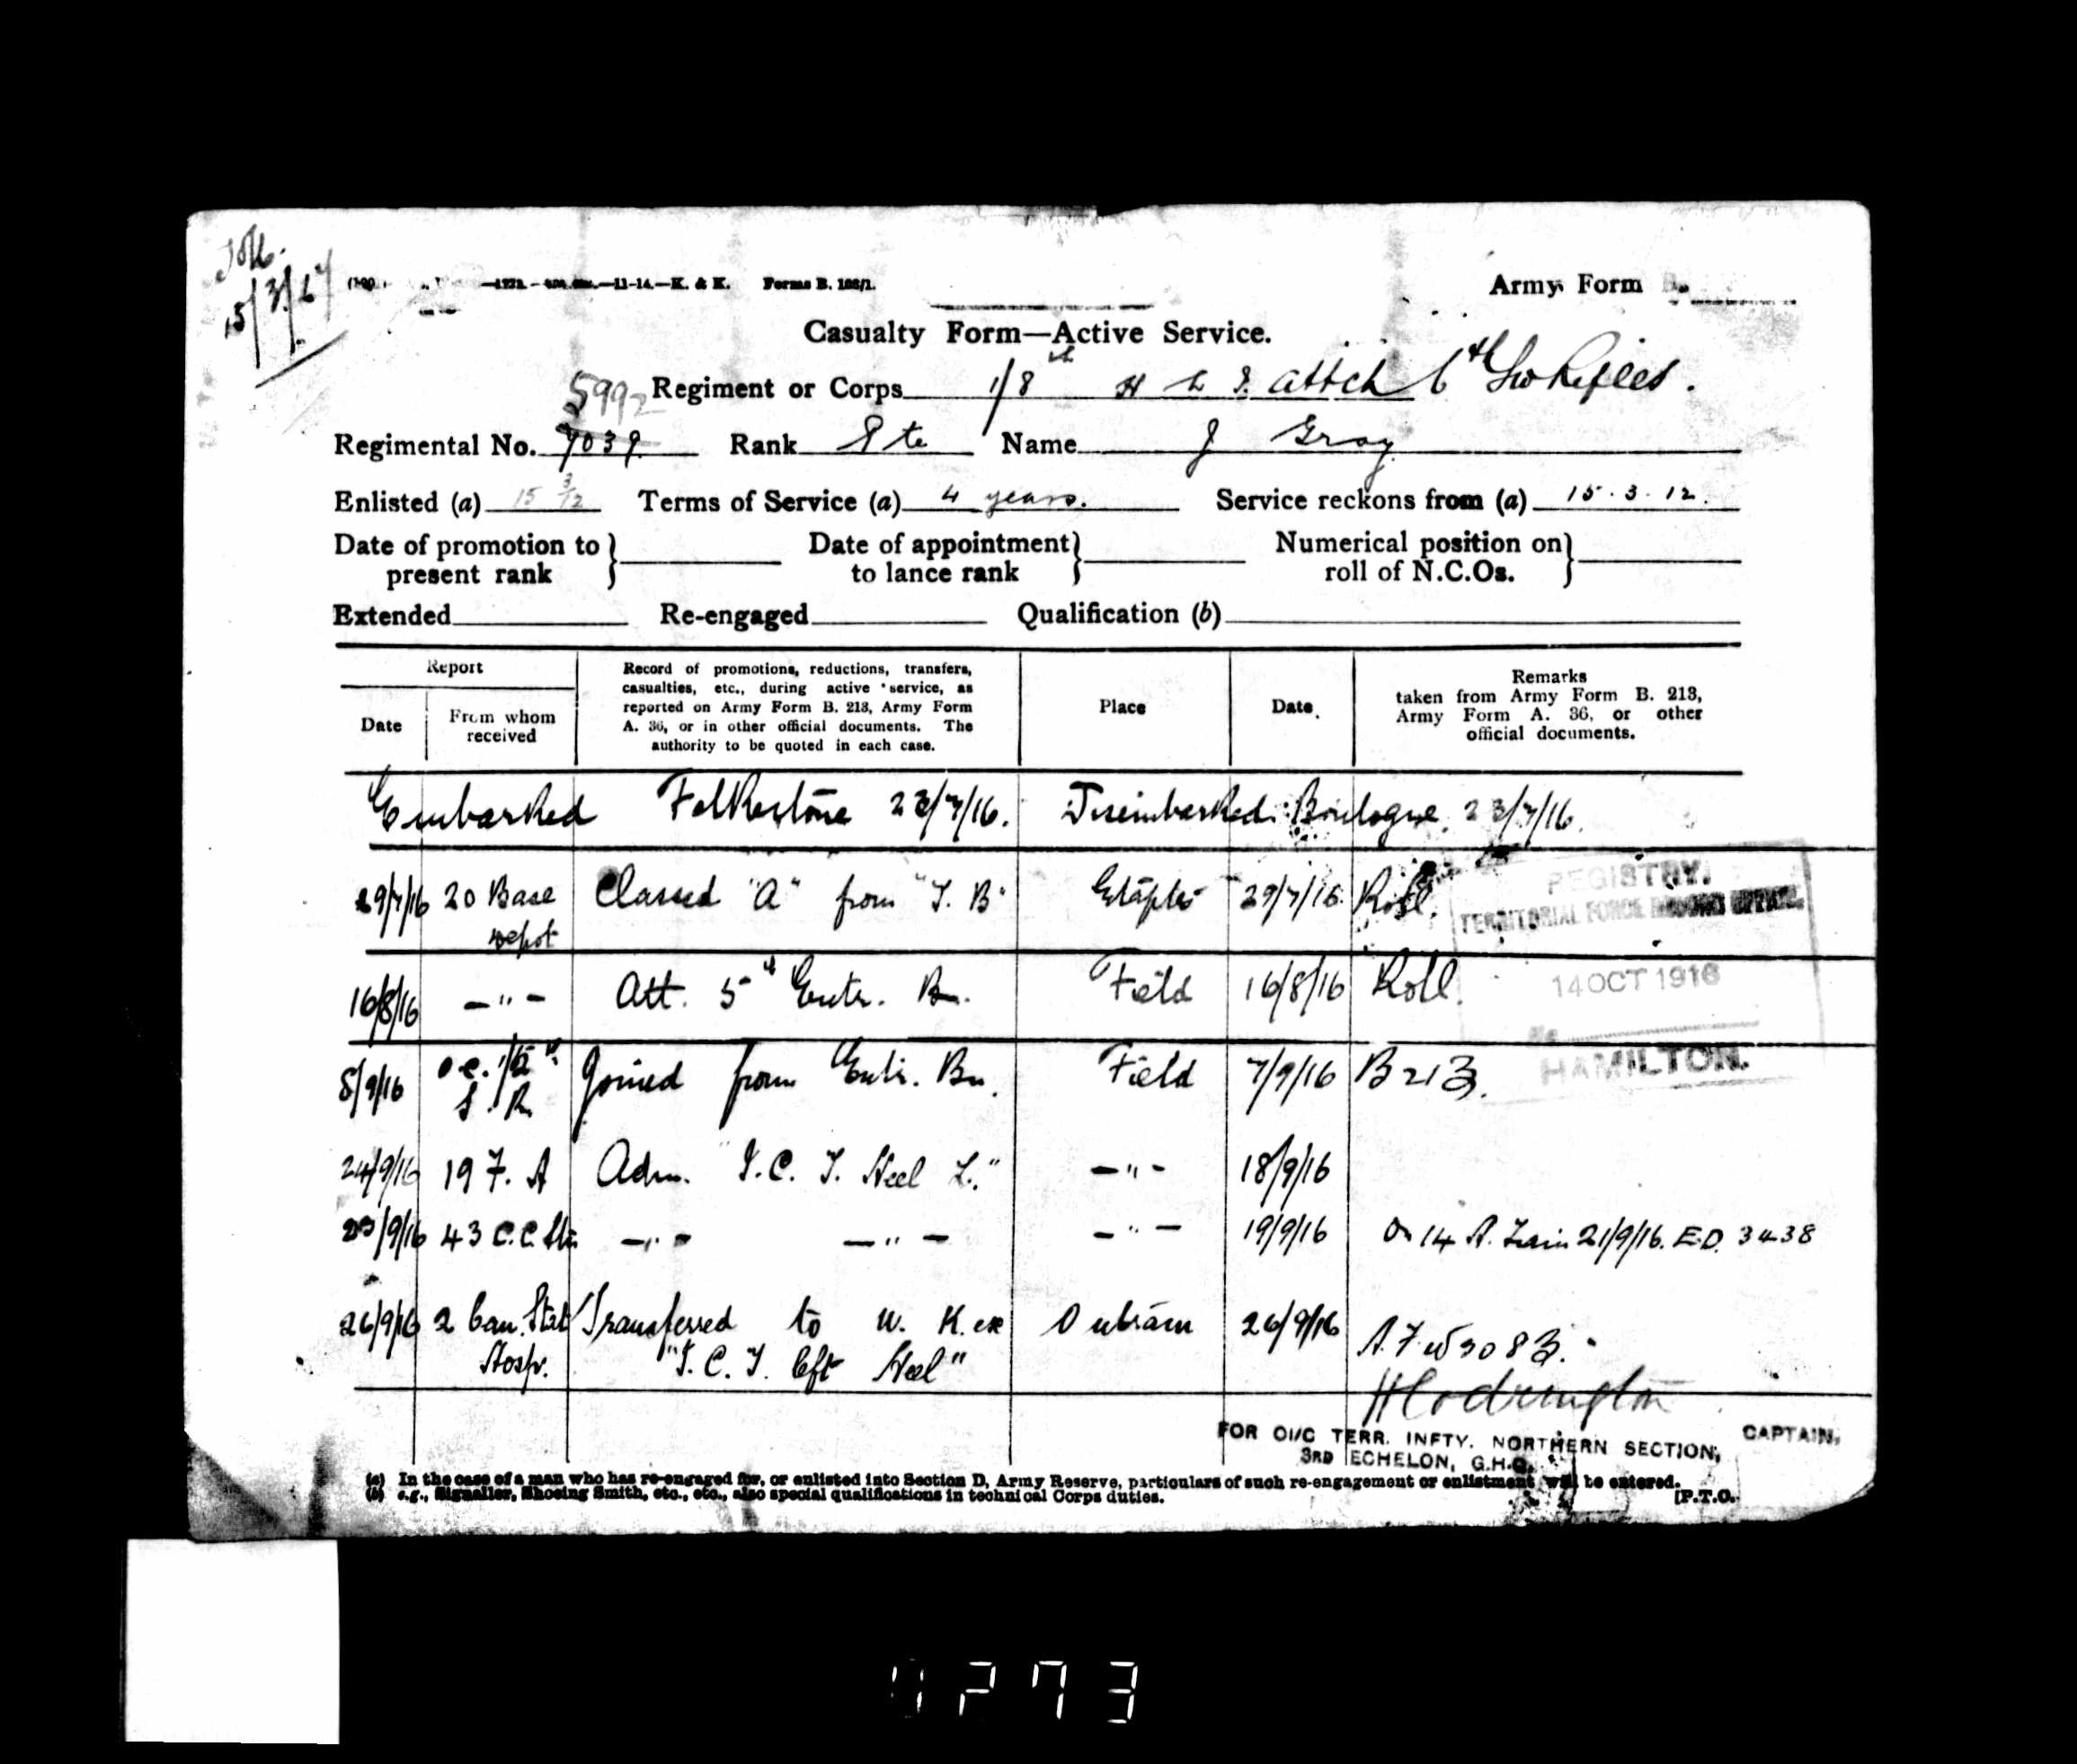 15/3/
—11-14.—K. & K. Forms B. 103/1.
Army Form B.
Casualty Form—Active Service.
5992
Regiment or Corps 1/8th H L I. attch 6th Rifles.
Regimental No. 7039 Rank Pte Name J Gray
Enlisted (a) 15 3/12 Terms of Service (a) 4 years. Service reckons from (a) 15.3.12.
Date of promotion to present rank
Date of appointment to lance rank
Numerical position on roll of N.C.Os.
Extended Re-engaged Qualification (b)
Report
Date
From whom received
Record of promotions, reductions, transfers, casualties, etc., during active service, as reported on Army Form B. 213, Army Form A. 36, or in other official documents. The authority to be quoted in each case.
Place
Date
Remarks taken from Army Form B. 213, Army Form A. 36, or other official documents.
Embarked Folkestone 23/7/16. Disembarked Boulogne 23/7/16.
29/7/16 20 Base Depot Classed "A" from "T. B" Etaples 29/7/16 Roll.
16/8/16 —"— Att. 5th Entr. Bn. Field 16/8/16 Roll.
8/9/16 O.C. 1/5th S. R. Joined from Entr. Bn. Field 7/9/16 B213.
24/9/16 19 F. A Adm. "I. C. T. Heel L." —"— 18/9/16
23/9/16 43 C.C. Stn —"— —"— —"— 19/9/16 On 14 A. Train 21/9/16. E.D. 3438
26/9/16 2 Can. Stat Hosp. Transferred to U. K. ex "I. C. T. left Heel" 26/9/16 A.F. W3083.
REGISTRY,
TERRITORIAL FORCE RECORDS OFFICE.
14 OCT 1916
No
HAMILTON.
H Codrington
CAPTAIN,
FOR OI/C TERR. INFTY. NORTHERN SECTION,
3RD ECHELON, G.H.Q.
(a) In the case of a man who has re-engaged for, or enlisted into Section D, Army Reserve, particulars of such re-engagement or enlistment will be entered.
(b) e.g., Signaller, Shoeing Smith, etc., etc., also special qualifications in technical Corps duties.
[P.T.O.
0273